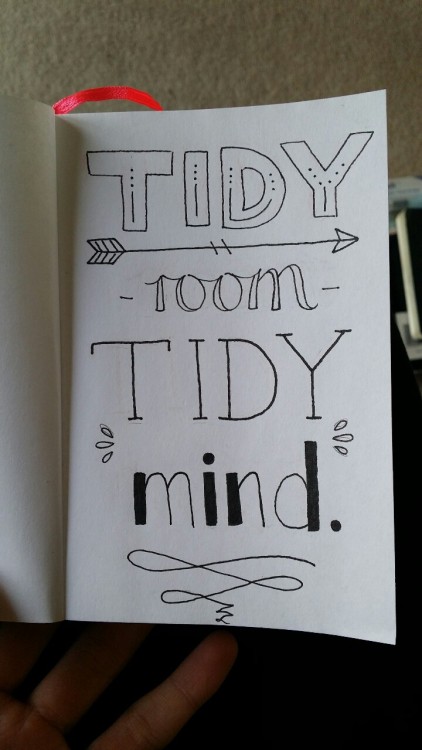 TIDY
-room-
TIDY
mind.